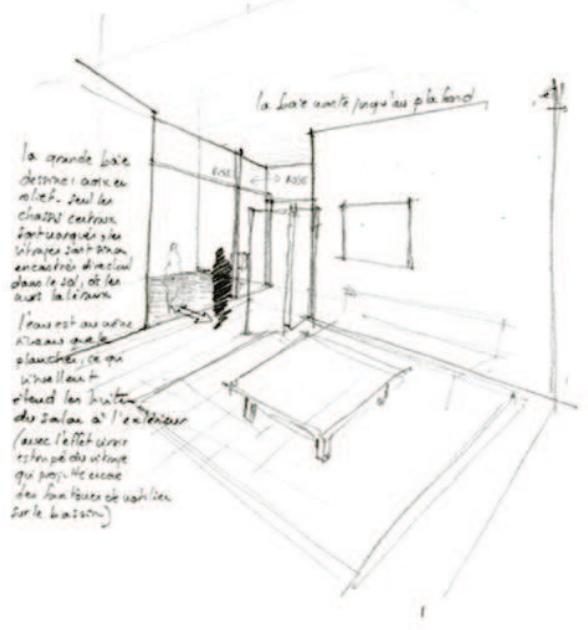 la baie monte jusqu'au plafond
ROSE
la grande baie
dessine 1 croix en
relief. Seul les
chassis centraux
sont marqués, les
vitrages sont sinon
encastrés
dans le sol, et les
murs latéraux
l'eau est au même
niveau que le
plancher, ce qui
étend les limites
du salon à l'extérieur
(avec l'effet miroir
estompé du vitrage
qui projette encore
des fantômes de mobilier
sur le bassin)